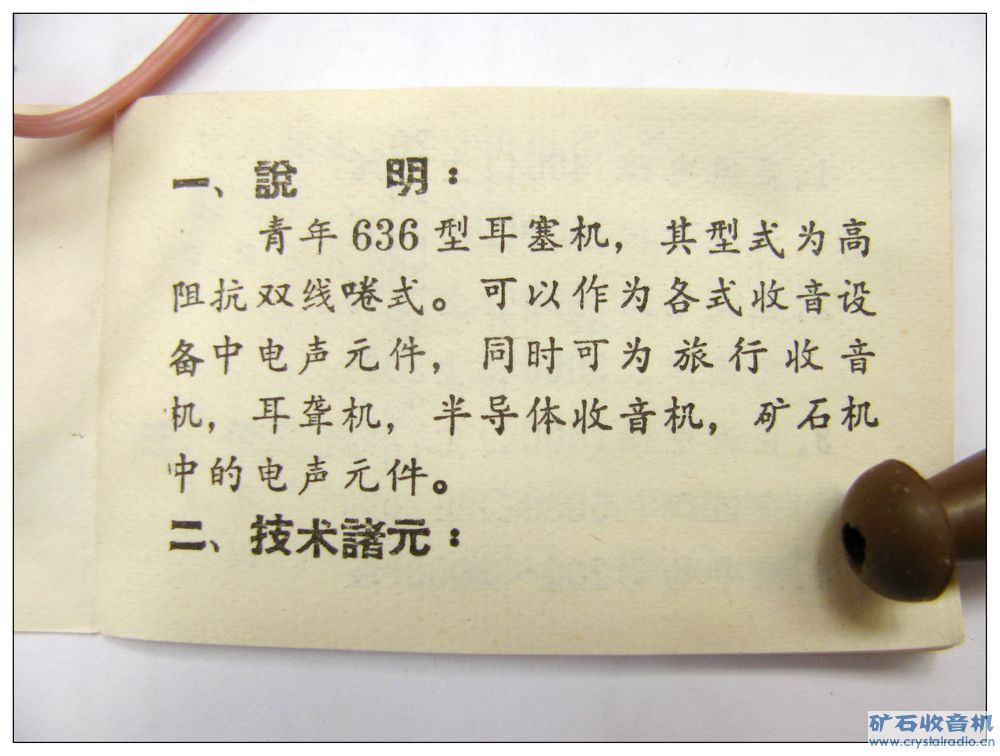 一、說　　明：
青年636型耳塞机，其型式为高
阻抗双线啳式。可以作为各式收音设
备中电声元件，同时可为旅行收音
机，耳聋机，半导体收音机，矿石机
中的电声元件。
二、技术諸元：
矿石收音机
www.crystalradio.cn